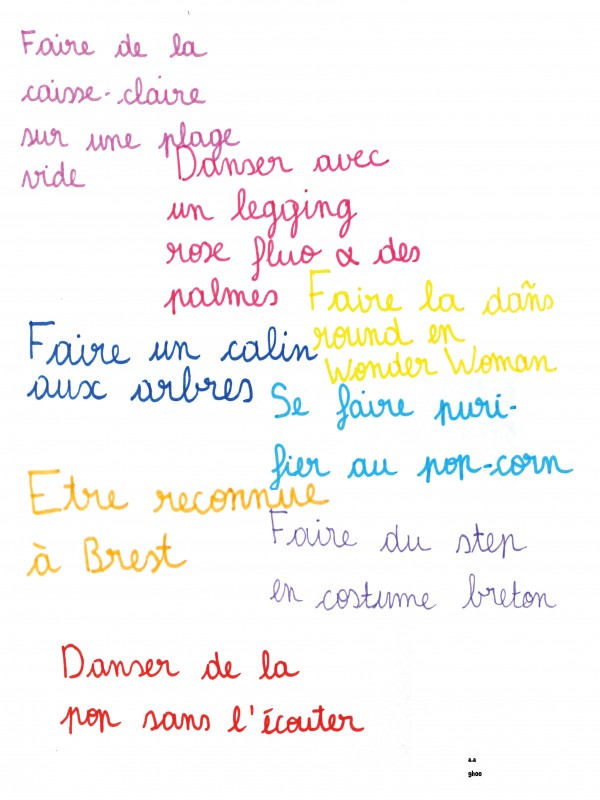 Faire de la
caisse-claire
sur une plage
vide
Danser avec
un legging
rose fluo & des
palmes
Faire la dañs
round en
Wonder Woman
Faire un calin
aux arbres
Se faire puri-
fier au pop-corn
Etre reconnue
à Brest
Faire du step
en costume breton
Danser de la
pop sans l'écouter
a.a
ghoo